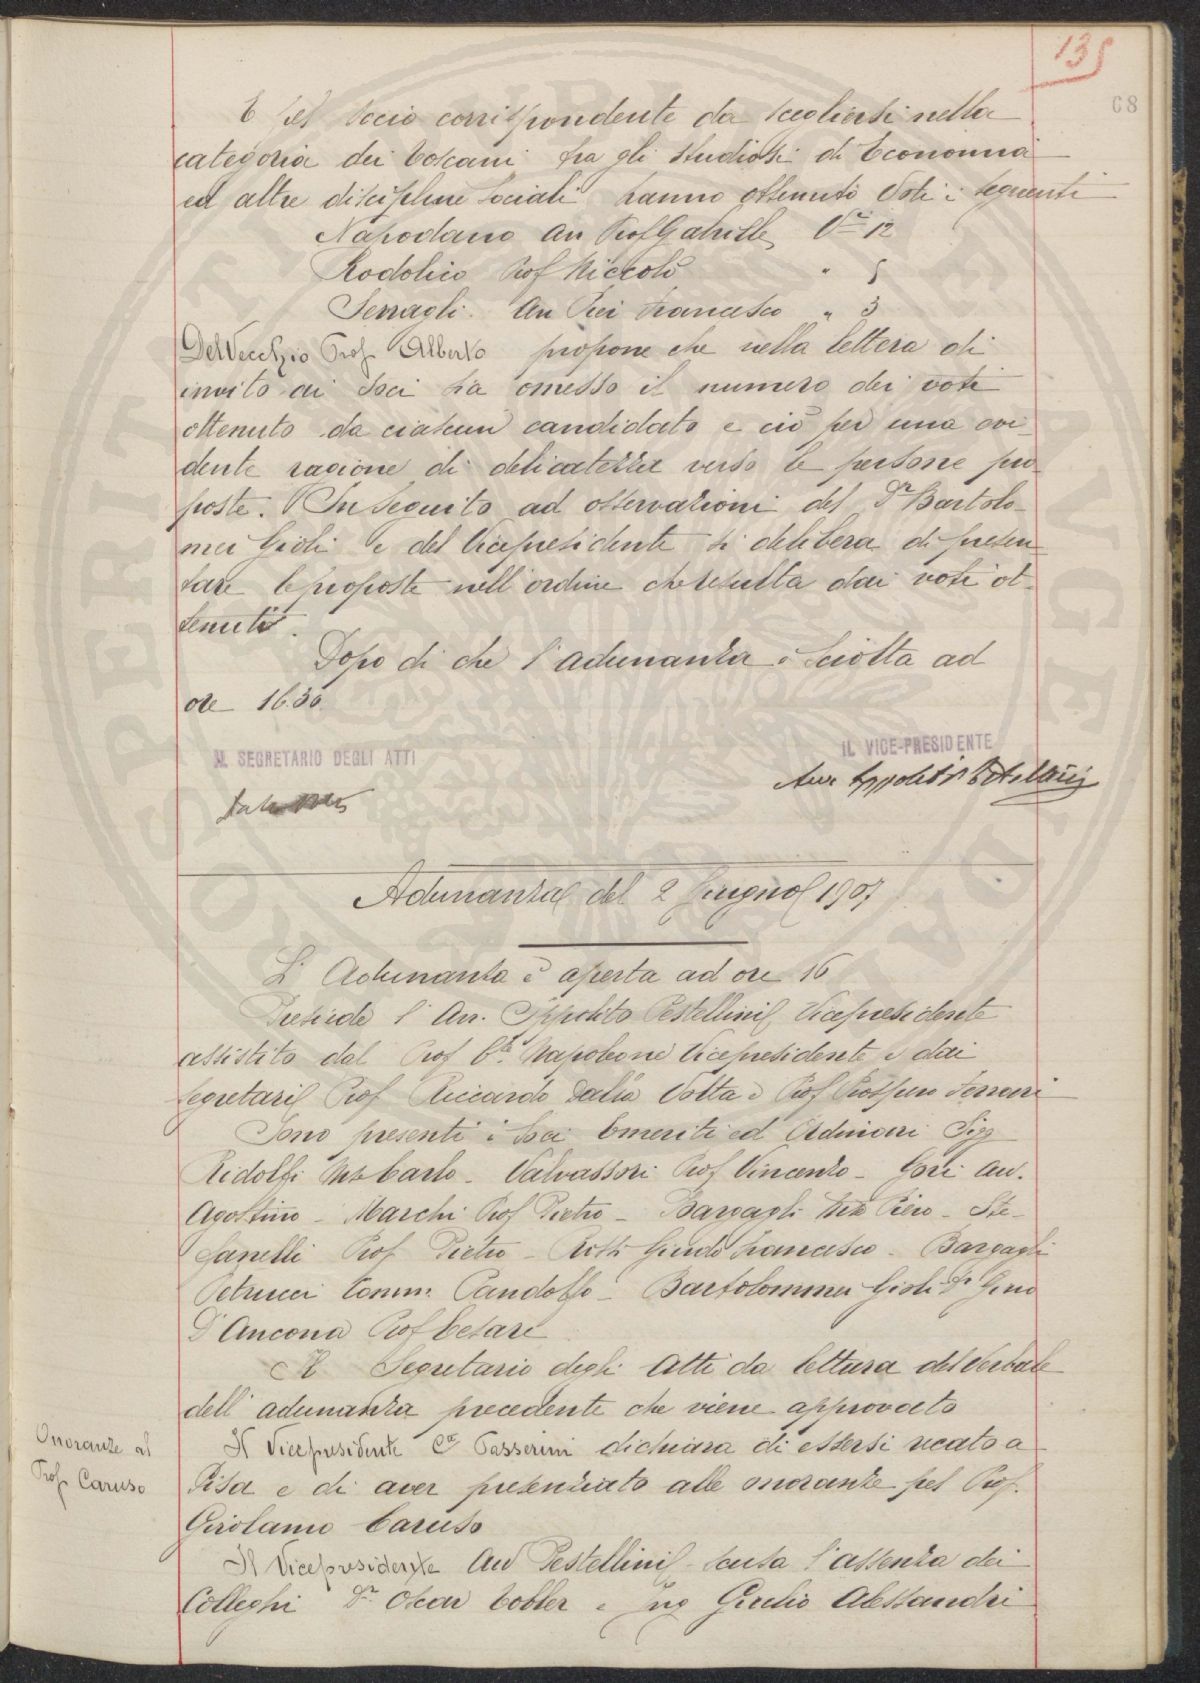 135
68
E pel socio corrispondente da scegliersi nella
categoria dei Toscani fra gli studiosi di Economia
ed altre discipline sociali hanno ottenuto Voti i seguenti
Napodano Avv Prof Gabriele Vti 12
Rodolico Prof Niccolò " 5
Serragli Avv Pier Francesco " 3
Del Vecchio Prof Alberto propone che nella lettera di
invito ai Soci sia omesso il numero dei voti
ottenuto da ciascun candidato e ciò per una evi-
dente ragione di delicatezza verso le persone pro-
poste. In seguito ad osservazioni del Dr Bartolo-
mei Gioli e del Vicepresidente si delibera di presen-
tare le proposte nell'ordine che resulta dai voti ot-
tenuti.
Dopo di che l'adunanza è sciolta ad
ore 16.30
IL SEGRETARIO DEGLI ATTI
IL VICE-PRESIDENTE
Avv Ippolito Pestellini
Adunanza del 2 Giugno 1907
L'Adunanza è aperta ad ore 16
Presiede l'Avv. Ippolito Pestellini Vicepresidente
assistito dal Prof Cte Napoleone Vicepresidente e dai
Segretari Prof Riccardo Dalla Volta e Prof Prospero Ferrari
Sono presenti i Soci Emeriti ed Ordinari Sigg
Ridolfi Mse Carlo - Valvassori Prof Vincenzo - Gori Avv.
Agostino - Marchi Prof Pietro - Bargagli Mse Piero - Ste-
fanelli Prof Pietro - Rossi Guido Francesco - Bargagli
Petrucci Comm. Pandolfo - Bartolommei Gioli Dr Gino
D'Ancona Prof Cesare
Il Segretario degli Atti da lettura del Verbale
dell'adunanza precedente che viene approvato
Onoranze al
Prof Caruso
Il Vicepresidente Cte Passerini dichiara di essersi recato a
Pisa e di aver presenziato alle onoranze pel Prof.
Girolamo Caruso
Il Vicepresidente Avv Pestellini scusa l'assenza dei
Colleghi Dr Oscar Tobler e Ing Giulio Alessandri